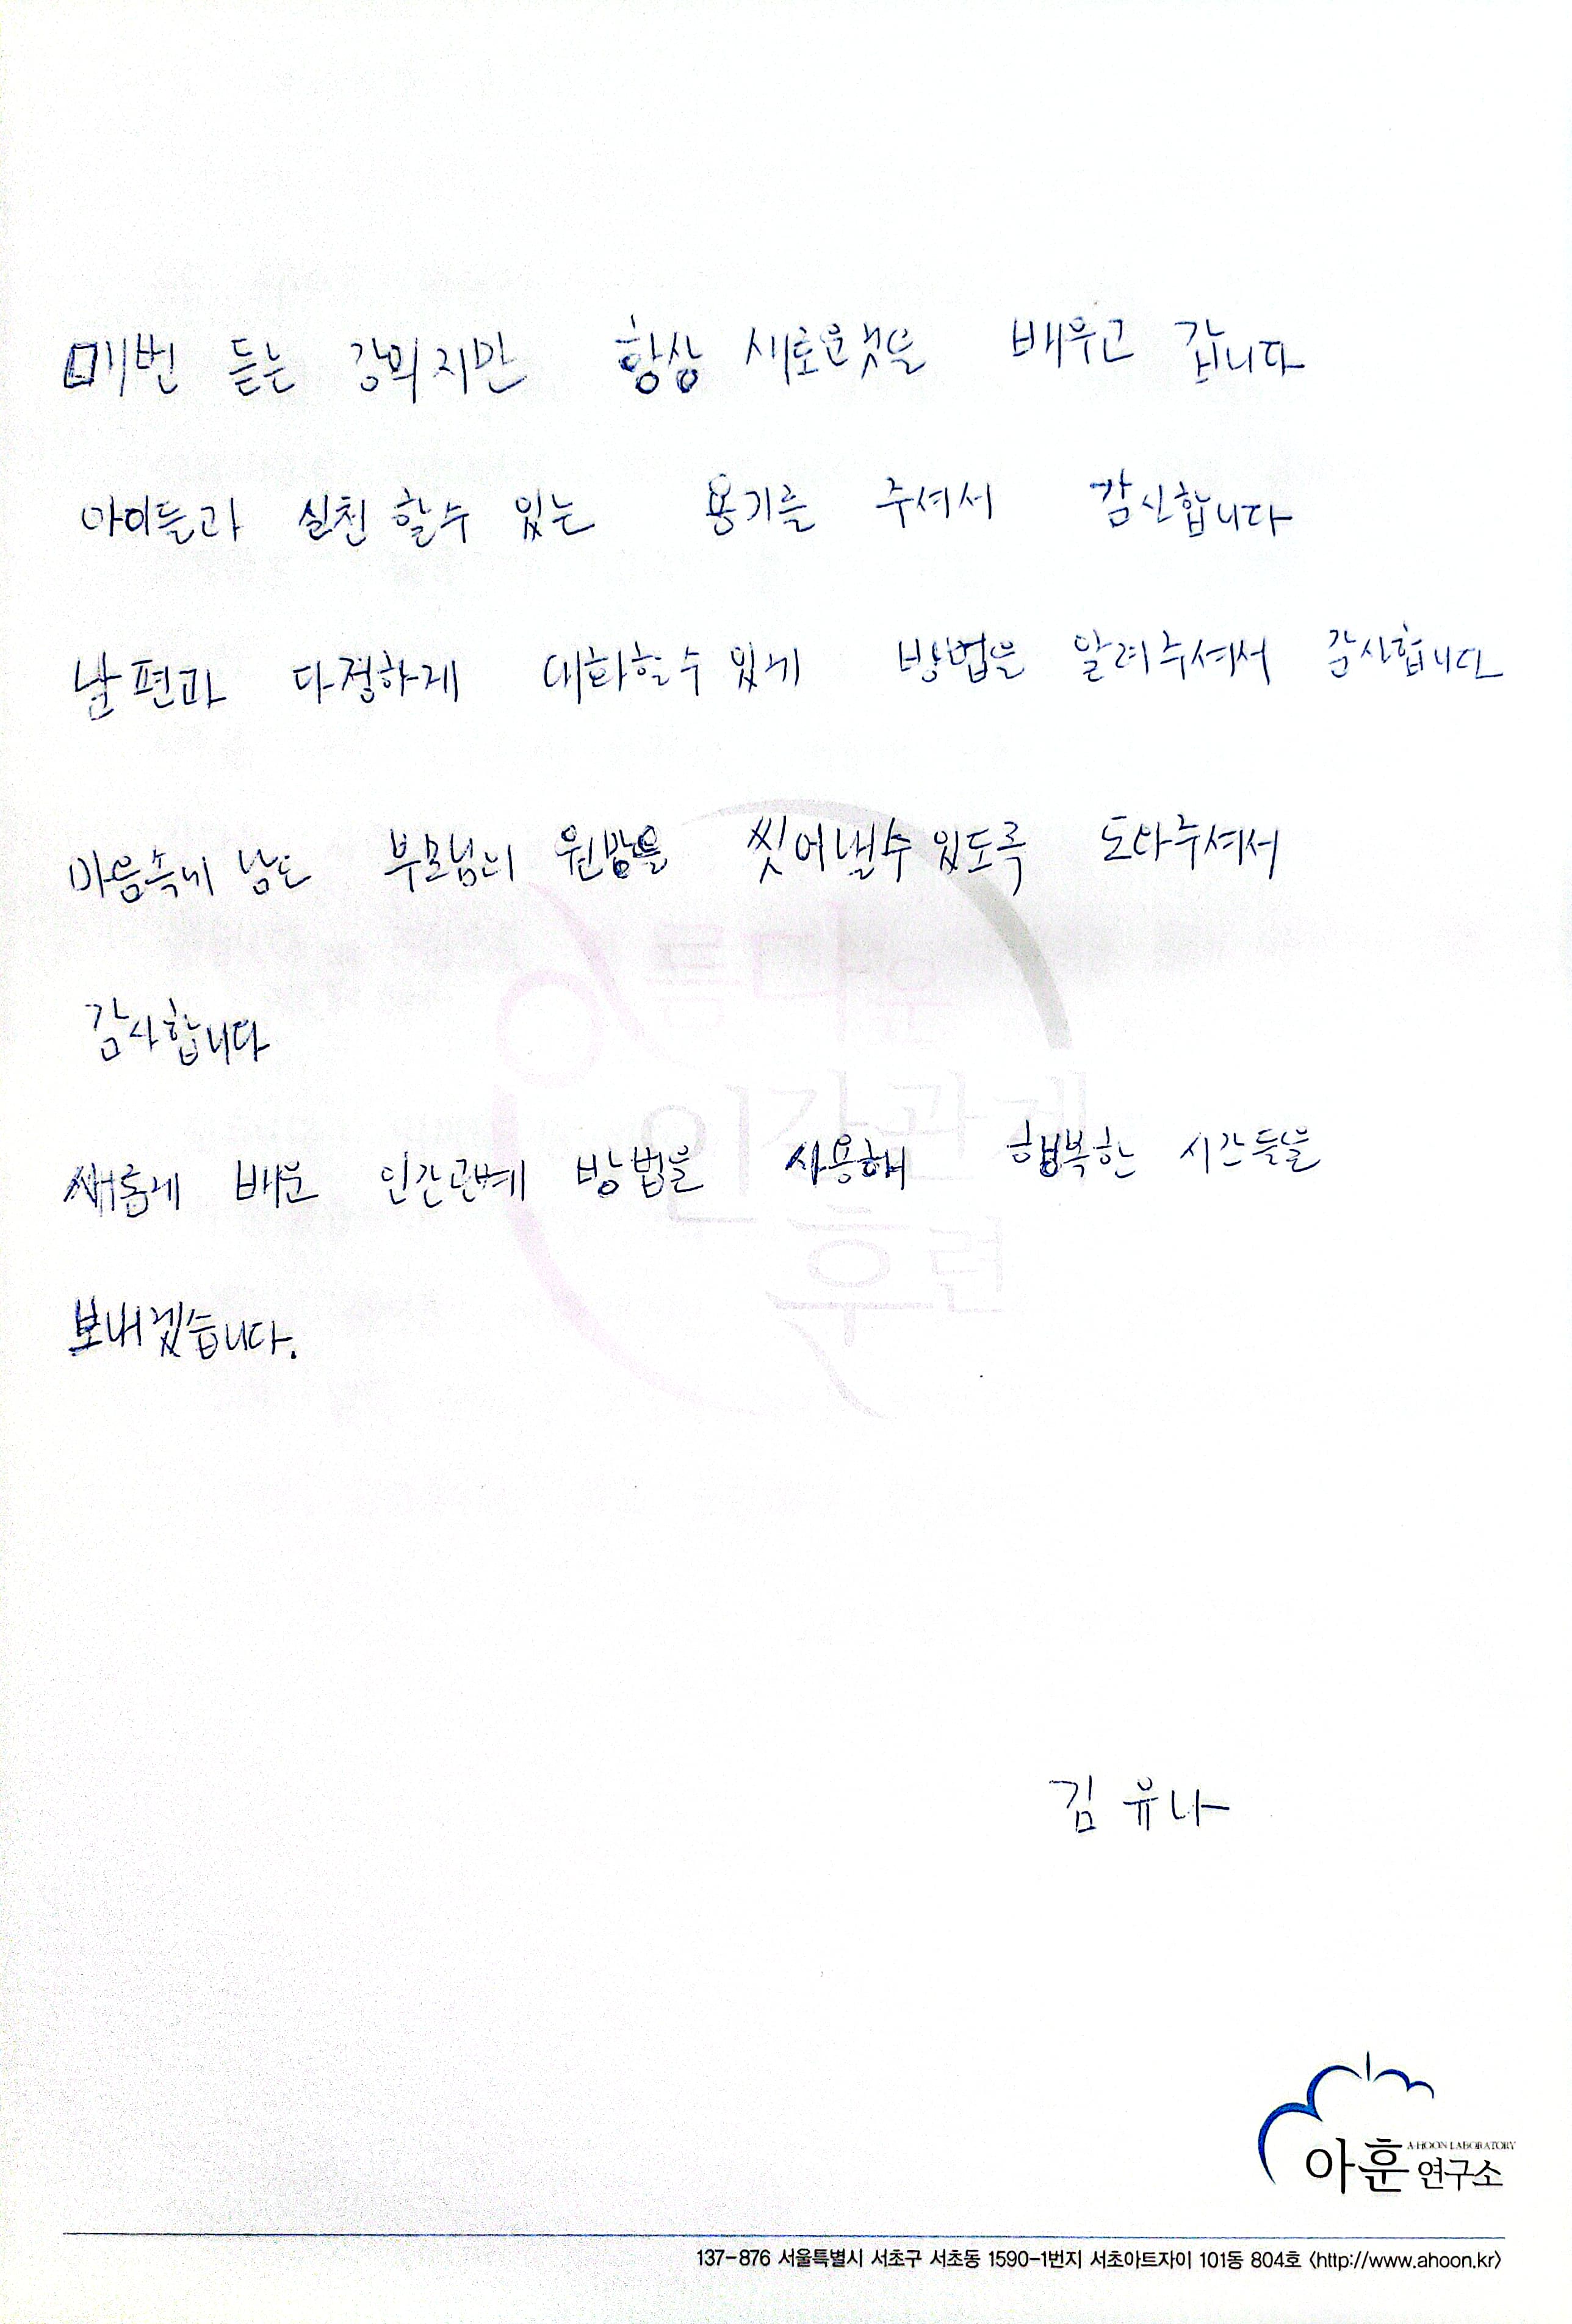 매번 듣는 강의지만 항상 새로운것을 배우고 갑니다
아이들과 실천 할수 있는 용기를 주셔서 감사합니다
남편과 다정하게 대화할수 있게 방법을 알려주셔서 감사합니다
마음속에 남는 부모님의 원망을 씻어낼수 있도록 도와주셔서
감사합니다
새롭게 배운 인간관계 방법을 사용해 행복한 시간들을
보내겠습니다.
아름다운
인간관계
훈련
김유나
A-HOON LABORATORY
아훈 연구소
137-876 서울특별시 서초구 서초동 1590-1번지 서초아트자이 101동 804호 〈http://www.ahoon.kr〉